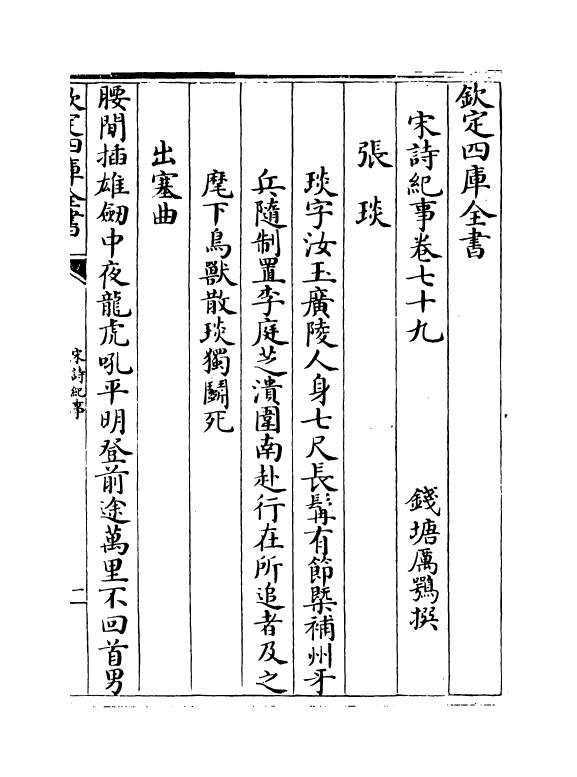 欽定四庫全書
宋詩紀事卷七十九
錢塘厲鶚撰
張琰
琰字汝玉廣陵人身七尺長髯有節槩補州牙
兵隨制置李庭芝潰圍南赴行在所追者及之
麾下鳥獸散琰獨鬭死
出塞曲
腰間插雄劒中夜龍虎吼平明登前途萬里不回首男
欽定四庫全書
宋詩紀事
二